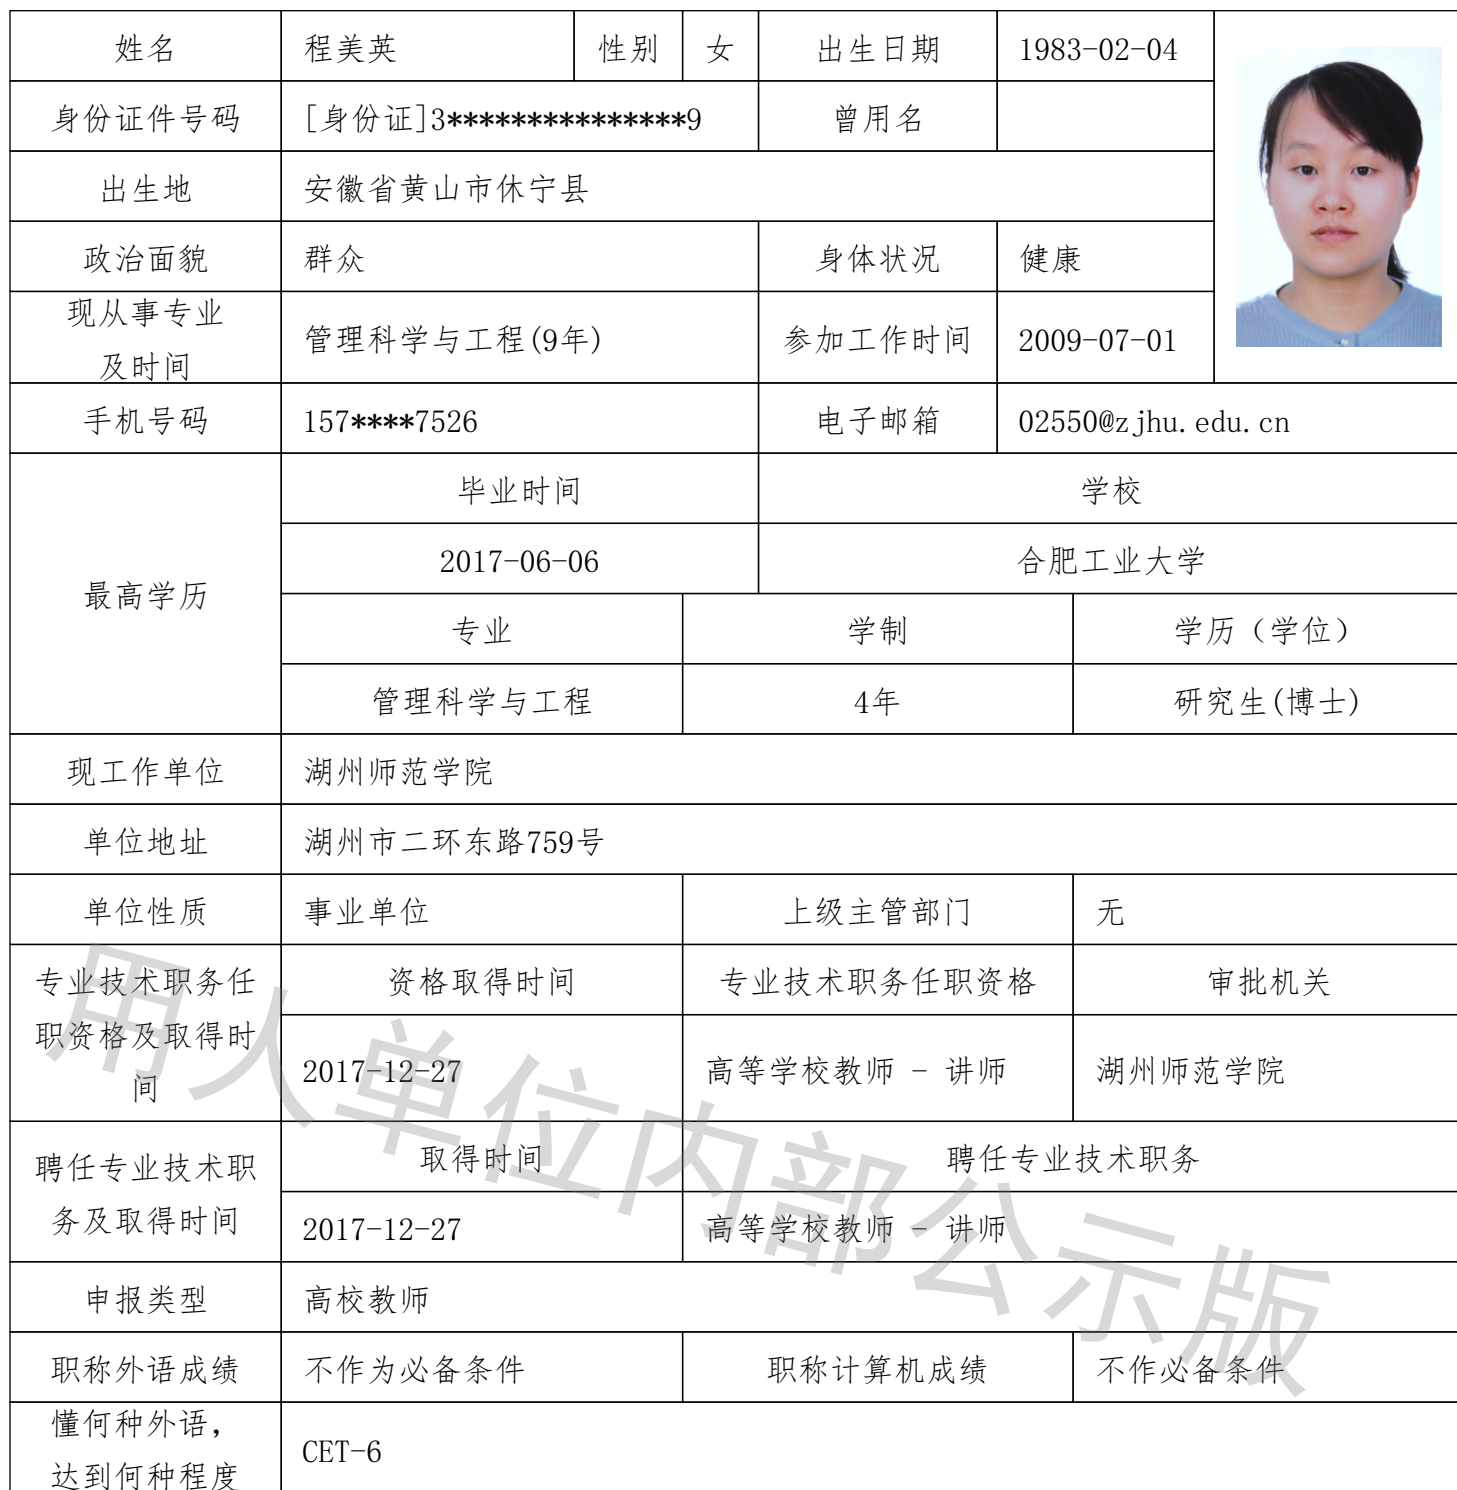 姓名 程美英 性别 女 出生日期 1983-02-04
身份证件号码 [身份证]3***************9 曾用名
出生地 安徽省黄山市休宁县
政治面貌 群众 身体状况 健康
现从事专业
及时间 管理科学与工程(9年) 参加工作时间 2009-07-01
手机号码 157****7526 电子邮箱 02550@zjhu.edu.cn
最高学历
毕业时间 学校
2017-06-06 合肥工业大学
专业 学制 学历（学位）
管理科学与工程 4年 研究生(博士)
现工作单位 湖州师范学院
单位地址 湖州市二环东路759号
单位性质 事业单位 上级主管部门 无
专业技术职务任
职资格及取得时
间
资格取得时间 专业技术职务任职资格 审批机关
2017-12-27 高等学校教师 - 讲师 湖州师范学院
聘任专业技术职
务及取得时间
取得时间 聘任专业技术职务
2017-12-27 高等学校教师 - 讲师
申报类型 高校教师
职称外语成绩 不作为必备条件 职称计算机成绩 不作必备条件
懂何种外语，
达到何种程度 CET-6
用人单位内部公示版